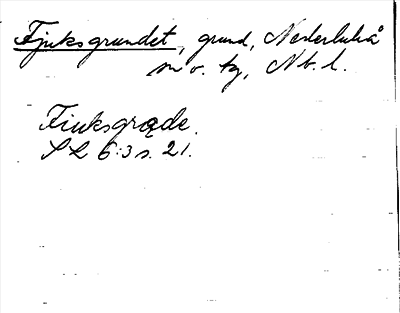 Fjuksgrundet, grund, Nederluleå
sn o. tg, Nb. l.
Fiuksgræde.
SL 6:3 s. 21.